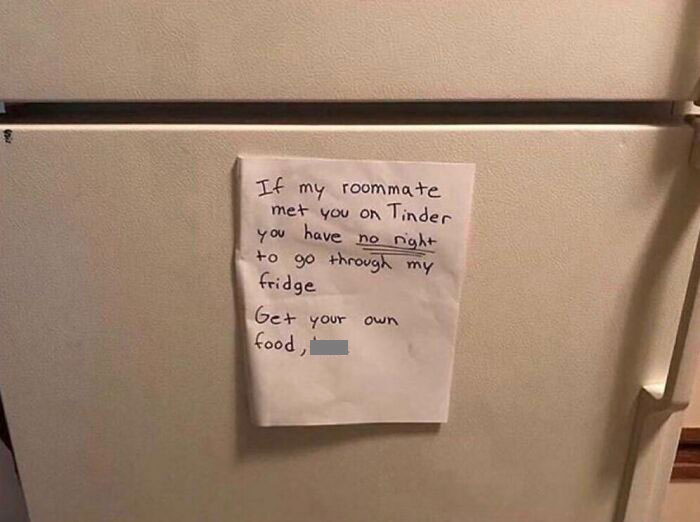 If my roommate
met you on Tinder
you have no right
to go through my
fridge
Get your own
food,